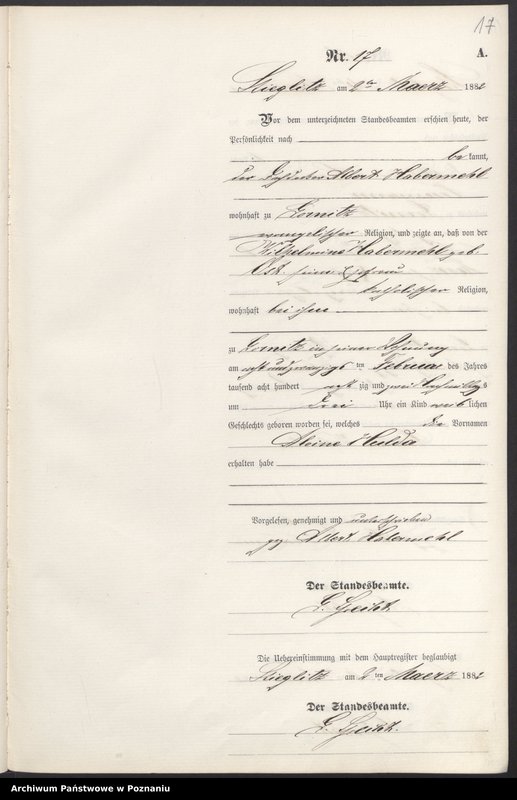 17
Nr. 17 A.
Stieglitz am 2ten Maerz 1882
Vor dem unterzeichneten Standesbeamten erschien heute, der
Persönlichkeit nach
be kannt,
der Albert Habermehl
wohnhaft zu Gornitz
evangelischer Religion, und zeigte an, daß von der
Wilhelmine Habermehl geb.
seiner Ehefrau
katholischer Religion,
wohnhaft bei ihm
zu Gornitz in seiner Wohnung
am acht und zwanzigsten Februar des Jahres
tausend acht hundert acht zig und zwei Nachmittags
um drei Uhr ein Kind weib lichen
Geschlechts geboren worden sei, welches die Vornamen
Hulda
erhalten habe
Vorgelesen, genehmigt und unterschrieben
gez. Albert Habermehl
Der Standesbeamte.
Die Uebereinstimmung mit dem Hauptregister beglaubigt
Stieglitz am 2ten Maerz 1882
Der Standesbeamte.
Archiwum Państwowe w Poznaniu